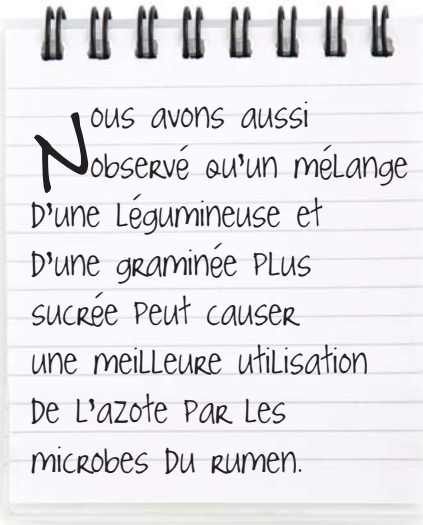 Nous avons aussi
observé qu'un mélange
d'une légumineuse et
d'une graminée plus
sucrée peut causer
une meilleure utilisation
de l'azote par les
microbes du rumen.